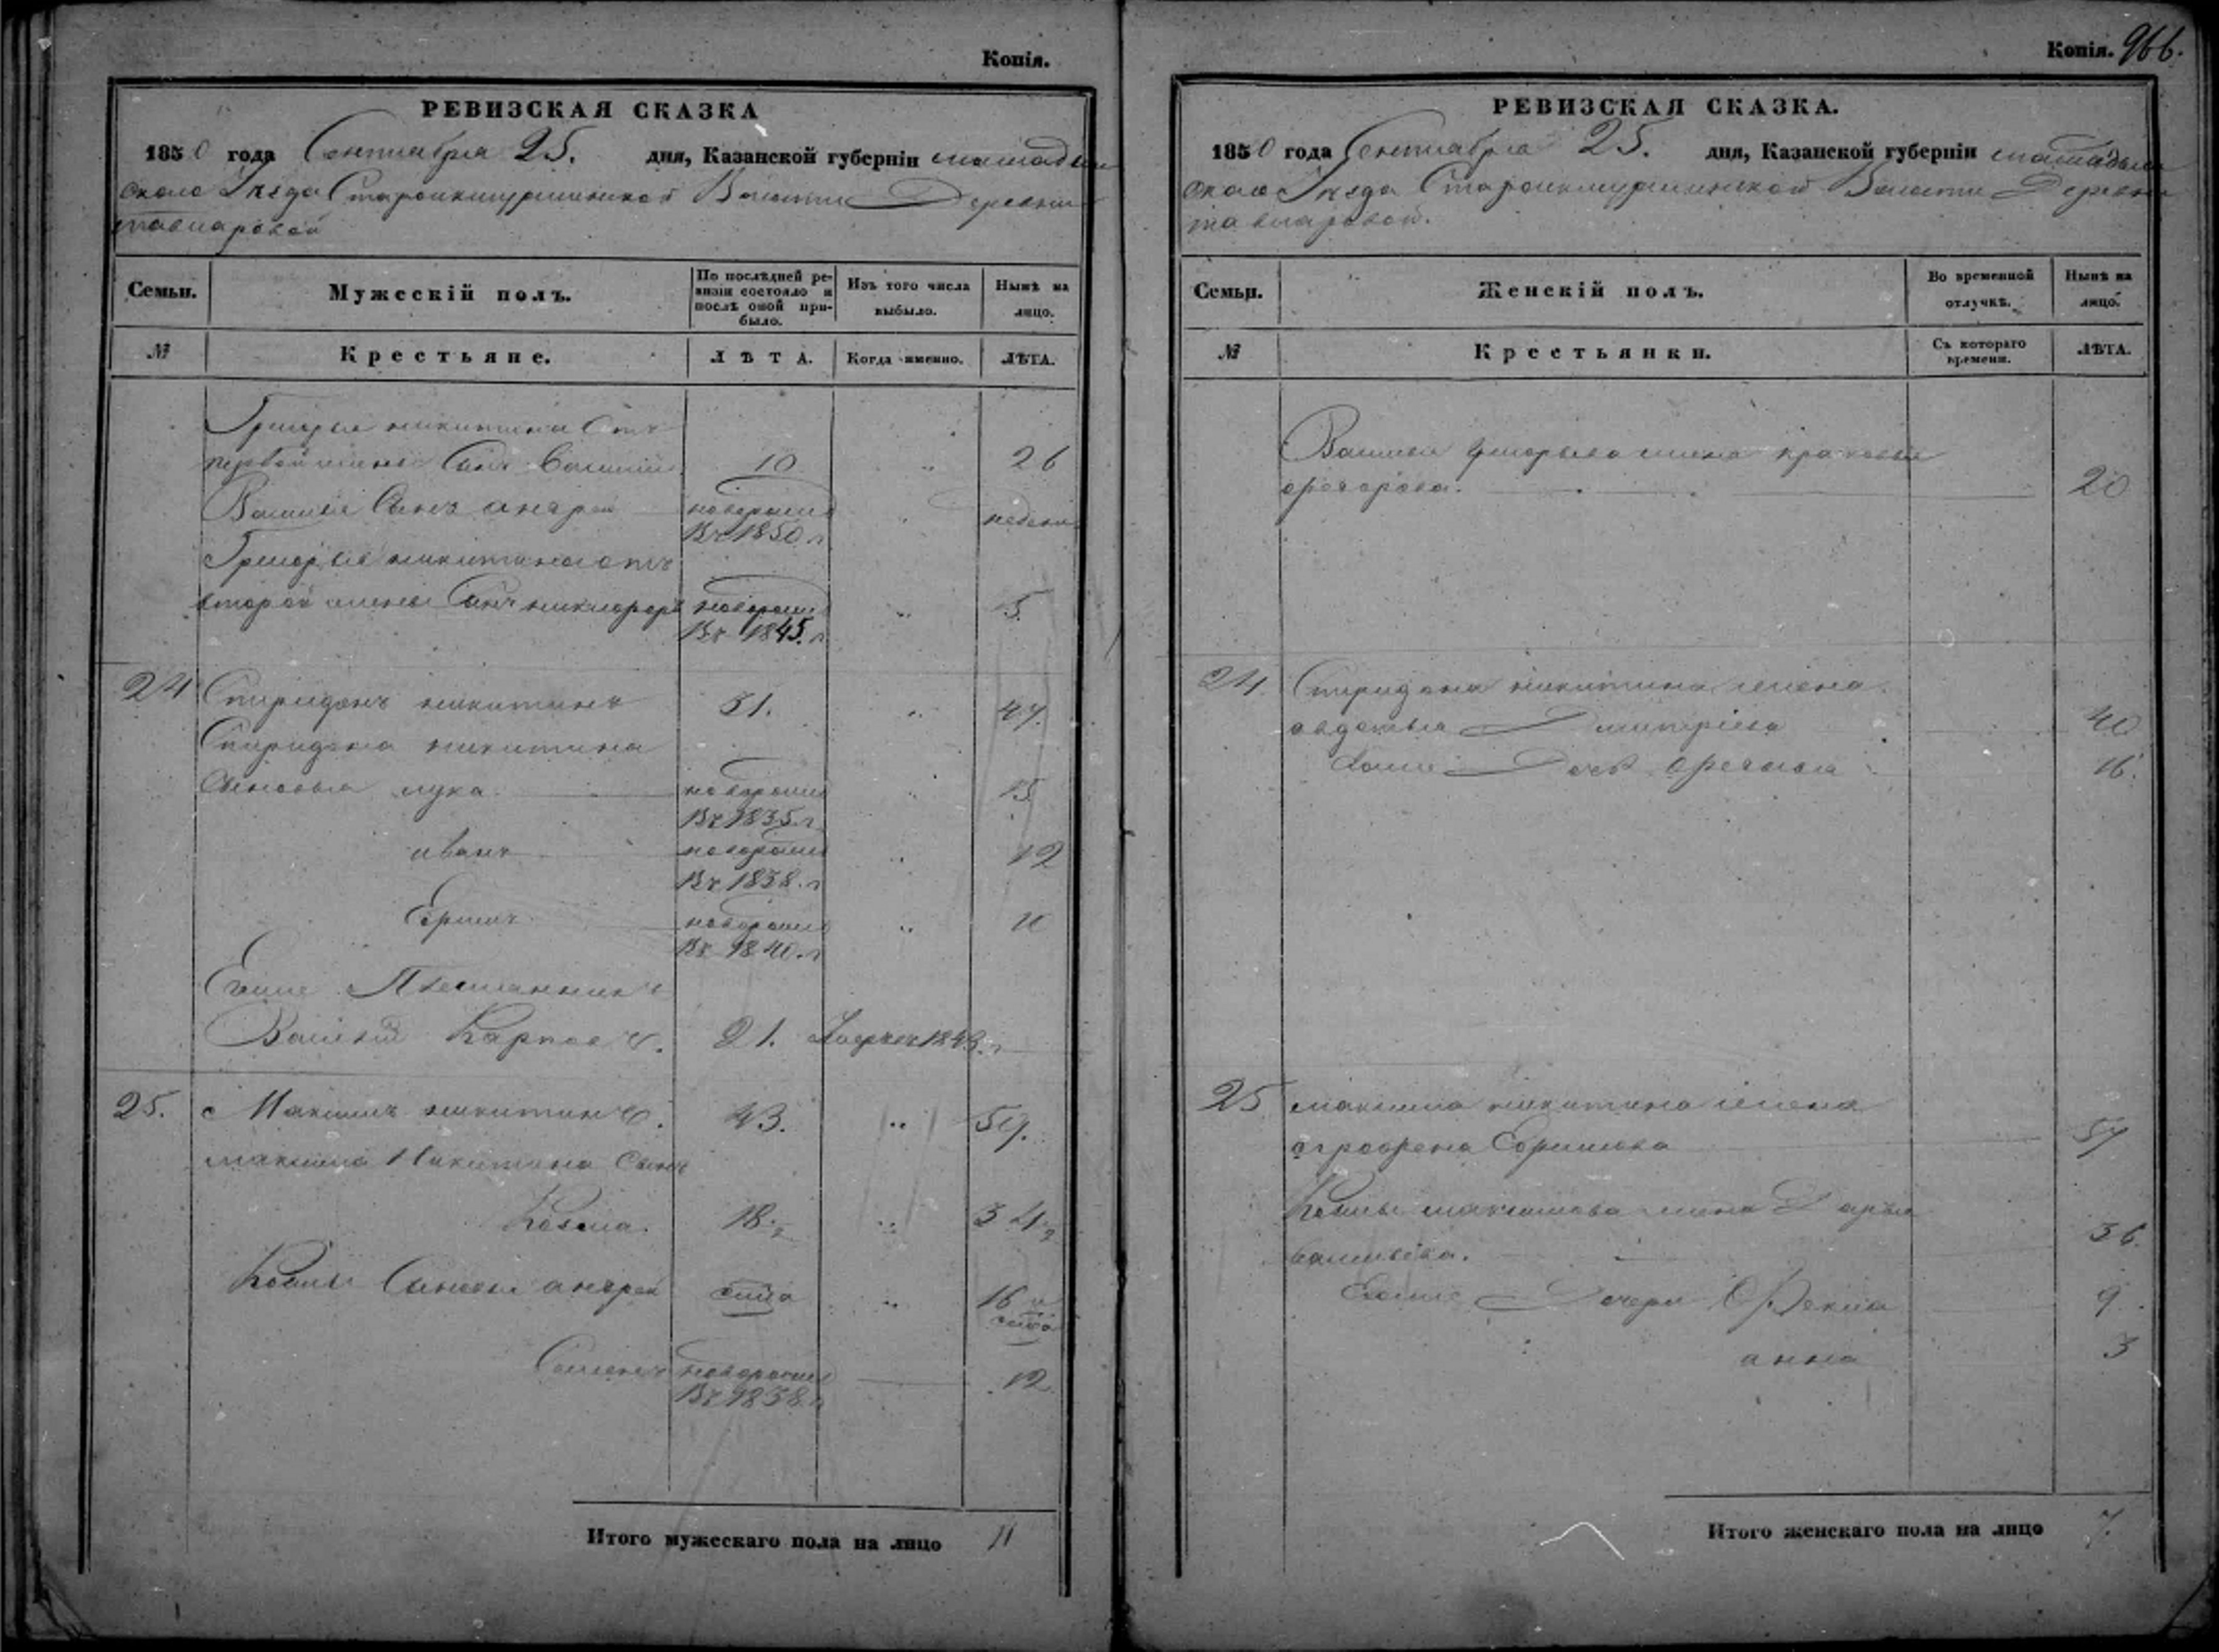 Копія.
РЕВИЗСКАЯ СКАЗКА
1850 года Сентября 25. дня, Казанской губерніи мамадыш
скаго Уезда Волости Деревни
Семьи.
Мужескій полъ.
По послѣдней ре-
визіи состояло и
послѣ оной при-
было.
Изъ того числа
выбыло.
Нынѣ на
лицо.
№
Крестьяне.
ЛѢТА.
Когда именно.
ЛѢТА.
Григорья никитина Отъ
первой жены Сынъ Василий 10 " 26
Василья Сынъ андрей новорожд " недели
Въ 1850 г
Григорья никитина отъ
второй жены Сынъ новорожд " 5.
Въ 1845. г
24 Спиридонъ никитинъ 31. " 47.
Спиридона никитина
Сыновья лука новорожд " 15
Въ 1835 г
иванъ новорожд " 12
Въ 1838. г
новорожд " 10
Въ 1840. г
Егоже Племянникъ
Василий Карповъ. 21. 1843. г
25. Максимъ никитинъ. 43. " 59.
максима Никитина Сынъ
Козма. 18. 1/2 " 34 1/2
Козмы Сыновья андрей " 16 и
Семенъ новорожд 12
Въ 1838 г
Итого мужескаго пола на лицо 11
Копія. 966.
РЕВИЗСКАЯ СКАЗКА.
1850 года Сентября 25. дня, Казанской губерніи мамадыш
скаго Уезда Волости Деревни
Семьи.
Женскій полъ.
Во временной
отлучкѣ.
Нынѣ на
лицо.
№
Крестьянки.
Съ котораго
времени.
ЛѢТА.
Василья григорьева жена
20
24. Спиридона никитина жена
авдотья Дмитріева 40
Дочь 16.
25 максима никитина жена
Ефимова 57
Козмы максимова жена Дарья
васильева. 36.
Дочери Фекла 9
анна 3
Итого женскаго пола на лицо 7.